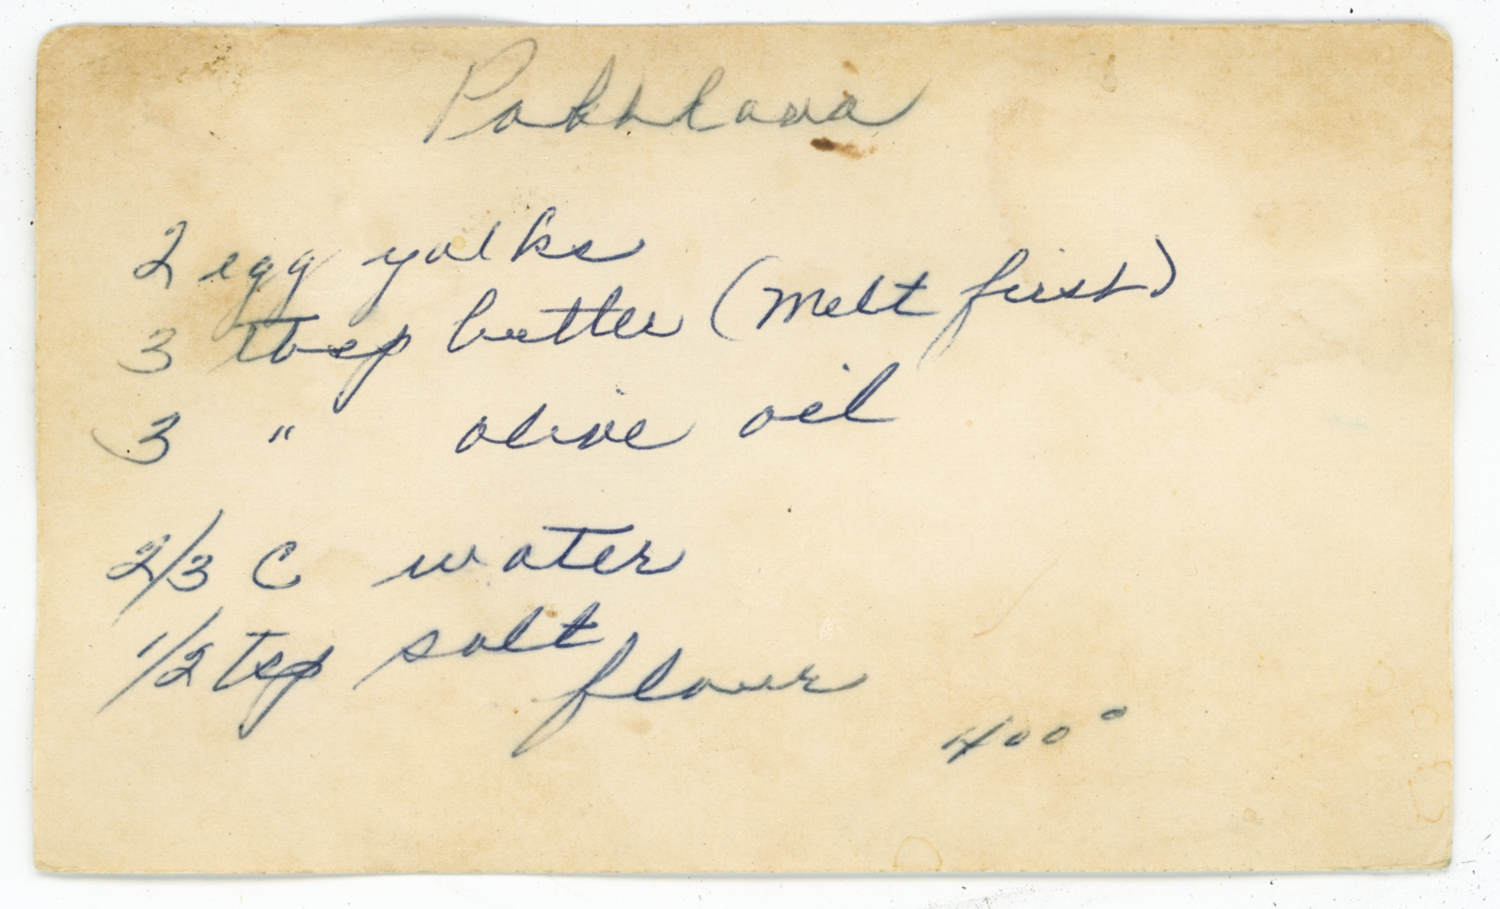 Pakhlava
2 egg yolks
3 tbsp butter (melt first)
3 " olive oil
2/3 C water
1/2 tsp salt
flour
400°